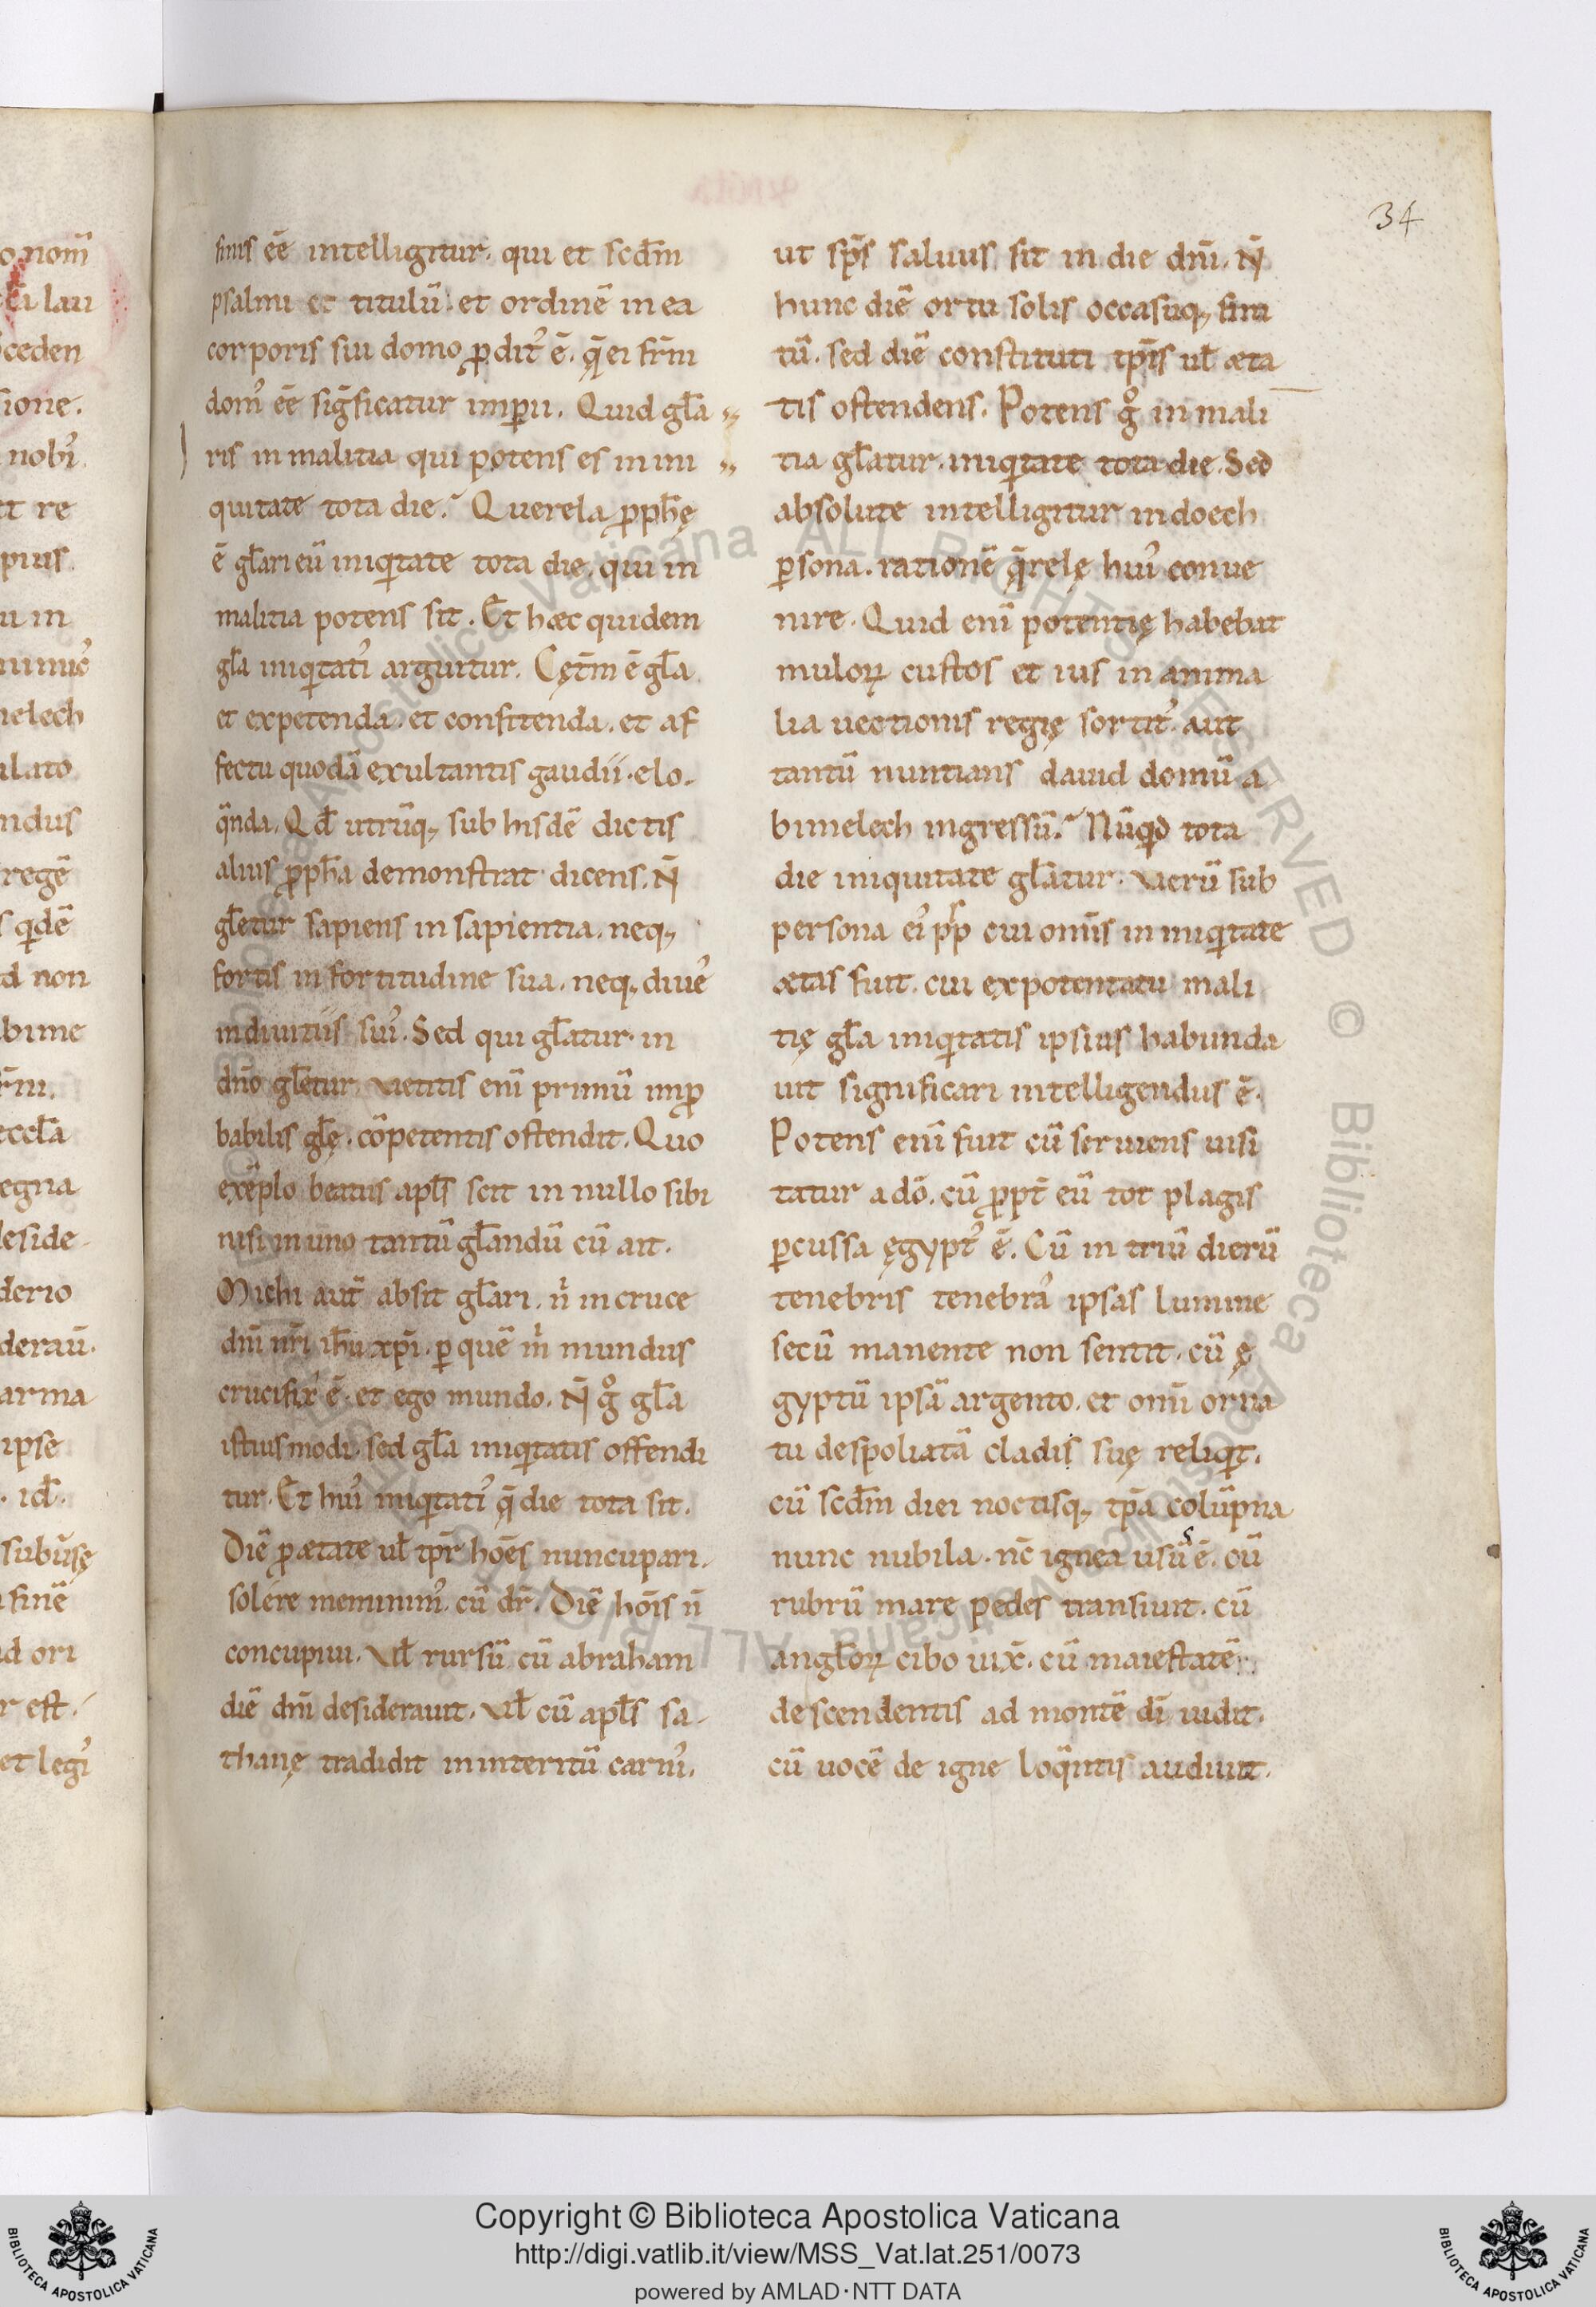 34
finis eē intelligitur. qui et scdm̄
psalmi et titulū. et ordinē in ea
corporis sui domo ꝓdit᾽ ē. q̄ ei frm̄
dom᾽ eē sigficatur impii. Quid gła
ris in malitia qui potens es in ini
quitate tota die? Querela ꝓpħę
ē głari eū iniqitate tota die. qui in
malitia potens sit. Et hæc quidem
gła iniqitati᾽ arguitur. Cętm̄ ē gła
et expetenda. et confitenda. et af
fectu quodā exultantis gaudii. elo
q̄nda. Qđ utrūq; sub hisdē dictis
alius ꝓpħa demonstrat dicens. N̄
głetur sapiens in sapientia. neq;
fortis in fortitudine sua. neq; diue᾽
in diuitiis sui᾽. Sed qui głatur in
dn̄o głetur. Vetitis eni᷑ primū imꝓ
babilis głę. cōpetentis ostendit. Quo
exēplo beatus apłs scit in nullo sibi
nisi in uno tantū głandū cū ait.
Michi aut̄ absit głari. n̍ in cruce
dn̄i nr̄i ih̄u xp̄i. ꝑ quē m̍ mundus
crucifix᾽ ē. et ego mundo. N̄ gͦ gła
istius modi. sed gła iniqitatis offendi
tur. Et hui᾽ iniqitati᾽ q̄ die tota sit.
Diē ꝓ ætate uł tpr̄ hoēs nuncupari
solere meminim᾽. cū dr̄. Diē hoīs n̄
concupiui. Vł rursū cū abraham
diē dn̄i desiderauit. Vł cū apłs sa
thanę tradidit in interitū carni᾽.
ut sps̄ saluus sit in die dn̄i. N̄
hunc diē ortu solis occasuq; fini
tū. sed diē constituti tp̄is uł æta
tis ostendens. Potens gͦ in mali
tia głatur. iniqitate tota die. Sed
absolute intelligitur in doech
ꝑsona. rationē q̄relę hui᾽ conue
nire. Quid eni᷑ potentię habebat
mulorꝝ custos et ius in anima
lia uectionis regię sortit᾽. aut
tantū nuntians dauid domū a
bimelech ingressū? Nūqd tota
die iniquitate głatur. Verū sub
persona ei᾽ ppł cui omīs in iniqitate
ætas fuit. cui ex potentatu mali
tię gła iniqitatis ipsius habunda
uit significari intelligendus ē.
Potens eni᷑ fuit cū seruiens uisi
tatur a dō. cū ꝓpt̄ eū tot plagis
ꝑcussa ęgypt᾽ ē. Cū in triū dierū
tenebris tenebra᾽ ipsas lumine
secū manente non sentit. cū ę
gyptū ipsā argento. et omī orna
tu despoliatā cladis suę reliqit.
cū scdm̄ diei noctisq; tp̄a colūpna
nunc nubila. nc̄ ignea usuˢ ē. cū
rubrū mare pedes transiuit. cū
angłorꝝ cibo uix̄. cū maiestatē
descendentis ad montē dī uidit.
cū uocē de igne loq̄ntis audiuit.
o nom̄
lau
ceden
sione.
nobi᾽.
t re
pius.
u in
melech
ulato
ndus
regē
s qidē
d non
bime
eccła
egna
deside
derio
deraū.
arma
ipse
. id̄.
finē
d ori
r est.
et legi᾽
Copyright © Biblioteca Apostolica Vaticana
http://digi.vatlib.it/view/MSS_Vat.lat.251/0073
powered by AMLAD·NTT DATA
BIBLIOTECA APOSTOLICA VATICANA
BIBLIOTECA APOSTOLICA VATICANA